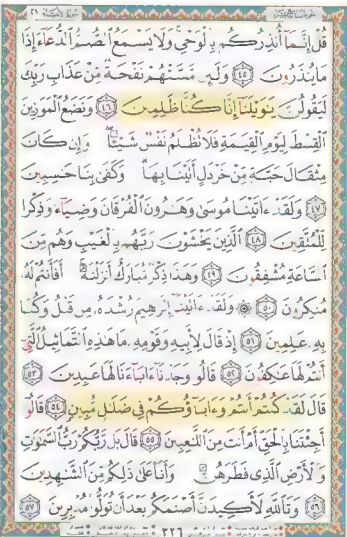 قُلْ إِنَّمَا أُنذِرُكُم بِالْوَحْيِ وَلَا يَسْمَعُ الصُّمُّ الدُّعَاءَ إِذَا
مَا يُنذَرُونَ ٤٥ وَلَئِن مَّسَّتْهُمْ نَفْحَةٌ مِّنْ عَذَابِ رَبِّكَ
لَيَقُولُنَّ يَٰوَيْلَنَا إِنَّا كُنَّا ظَٰلِمِينَ ٤٦ وَنَضَعُ الْمَوَٰزِينَ
الْقِسْطَ لِيَوْمِ الْقِيَٰمَةِ فَلَا تُظْلَمُ نَفْسٌ شَيْئًا وَإِن كَانَ
مِثْقَالَ حَبَّةٍ مِّنْ خَرْدَلٍ أَتَيْنَا بِهَا وَكَفَىٰ بِنَا حَٰسِبِينَ
٤٧ وَلَقَدْ ءَاتَيْنَا مُوسَىٰ وَهَٰرُونَ الْفُرْقَانَ وَضِيَاءً وَذِكْرًا
لِّلْمُتَّقِينَ ٤٨ الَّذِينَ يَخْشَوْنَ رَبَّهُم بِالْغَيْبِ وَهُم مِّنَ
السَّاعَةِ مُشْفِقُونَ ٤٩ وَهَٰذَا ذِكْرٌ مُّبَارَكٌ أَنزَلْنَٰهُ أَفَأَنتُمْ لَهُ
مُنكِرُونَ ٥٠ ۞ وَلَقَدْ ءَاتَيْنَا إِبْرَٰهِيمَ رُشْدَهُ مِن قَبْلُ وَكُنَّا
بِهِ عَٰلِمِينَ ٥١ إِذْ قَالَ لِأَبِيهِ وَقَوْمِهِ مَا هَٰذِهِ التَّمَاثِيلُ الَّتِي
أَنتُمْ لَهَا عَٰكِفُونَ ٥٢ قَالُوا وَجَدْنَا ءَابَاءَنَا لَهَا عَٰبِدِينَ ٥٣
قَالَ لَقَدْ كُنتُمْ أَنتُمْ وَءَابَاؤُكُمْ فِي ضَلَٰلٍ مُّبِينٍ ٥٤ قَالُوا
أَجِئْتَنَا بِالْحَقِّ أَمْ أَنتَ مِنَ اللَّٰعِبِينَ ٥٥ قَالَ بَل رَّبُّكُمْ رَبُّ السَّمَٰوَٰتِ
وَالْأَرْضِ الَّذِي فَطَرَهُنَّ وَأَنَا عَلَىٰ ذَٰلِكُم مِّنَ الشَّٰهِدِينَ
٥٦ وَتَاللَّهِ لَأَكِيدَنَّ أَصْنَٰمَكُم بَعْدَ أَن تُوَلُّوا مُدْبِرِينَ ٥٧
٣٢٦